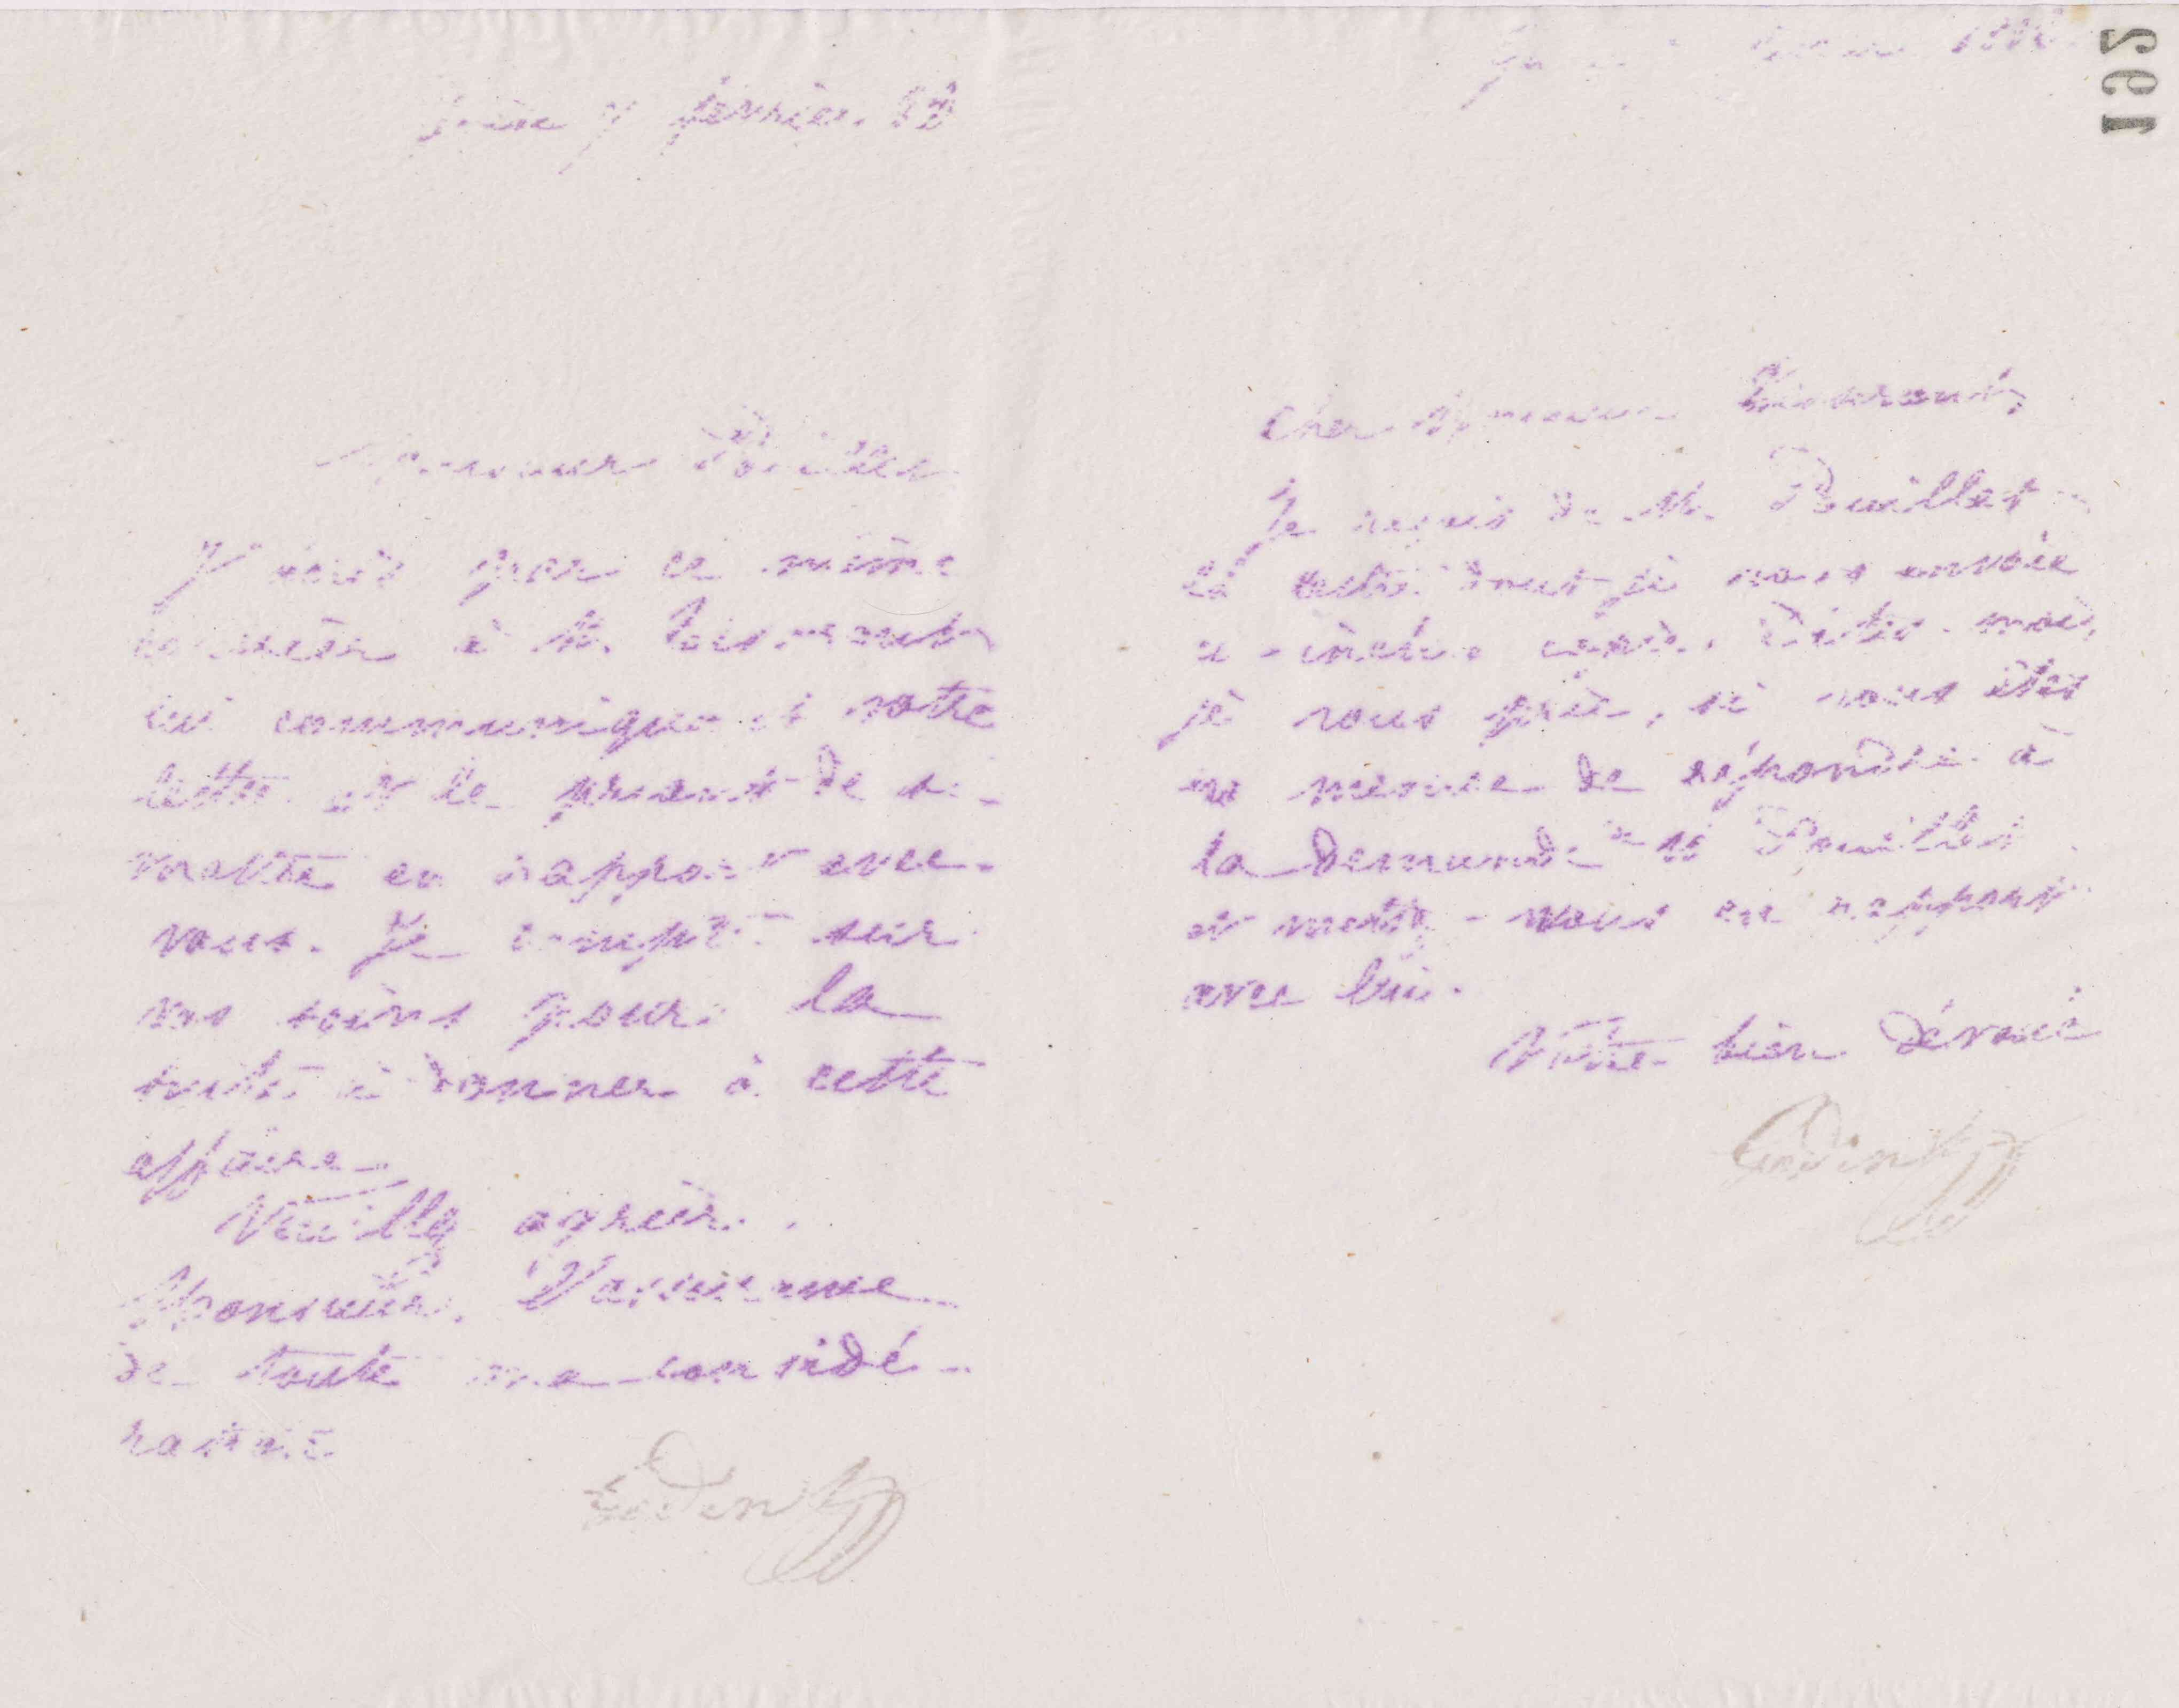 Guise 7 février 88
Monsieur Pouillet
J'écris par ce même
courrier à M. Tisserant
lui communiquant votre
lettre et le priant de se
mettre en rapport avec
vous. Je compte sur
vos soins pour la
suite à donner à cette
affaire
Veuillez agréer,
Monsieur, l'assurance
de toute ma considé-
ration
Godin
192
1888
Cher Monsieur Tisserant,
Je reçois de M. Pouillet
la lettre dont je vous envoie
ci-inclus copie. Dites-moi,
je vous prie, si vous êtes
en mesure de répondre à
la demande de M. Pouillet
et mettez-vous en rapport
avec lui.
Votre bien dévoué
Godin